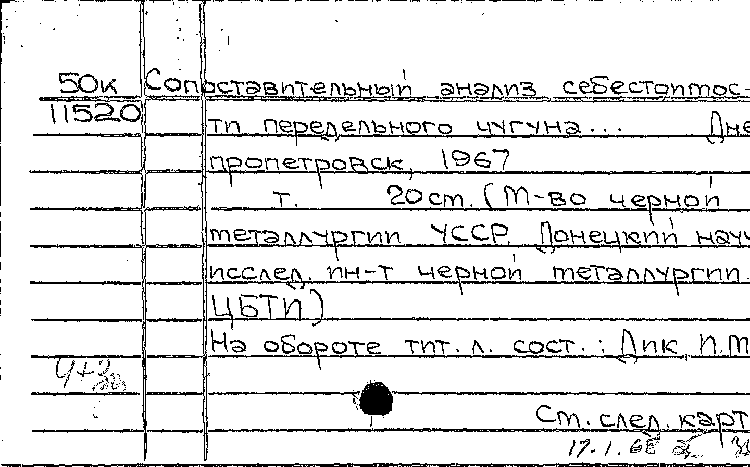 50к Сопоставительный анализ себестоимос-
11520 ти передельного чугуна... Дне
пропетровск, 1967
т. 20 см. (М-во черной
металлургии УССР. Донецкий науч
исслед. ин-т черной металлургии.
ЦБТИ)
На обороте тит. л. сост.: Дик П.М
См. след. карт
17.1.68